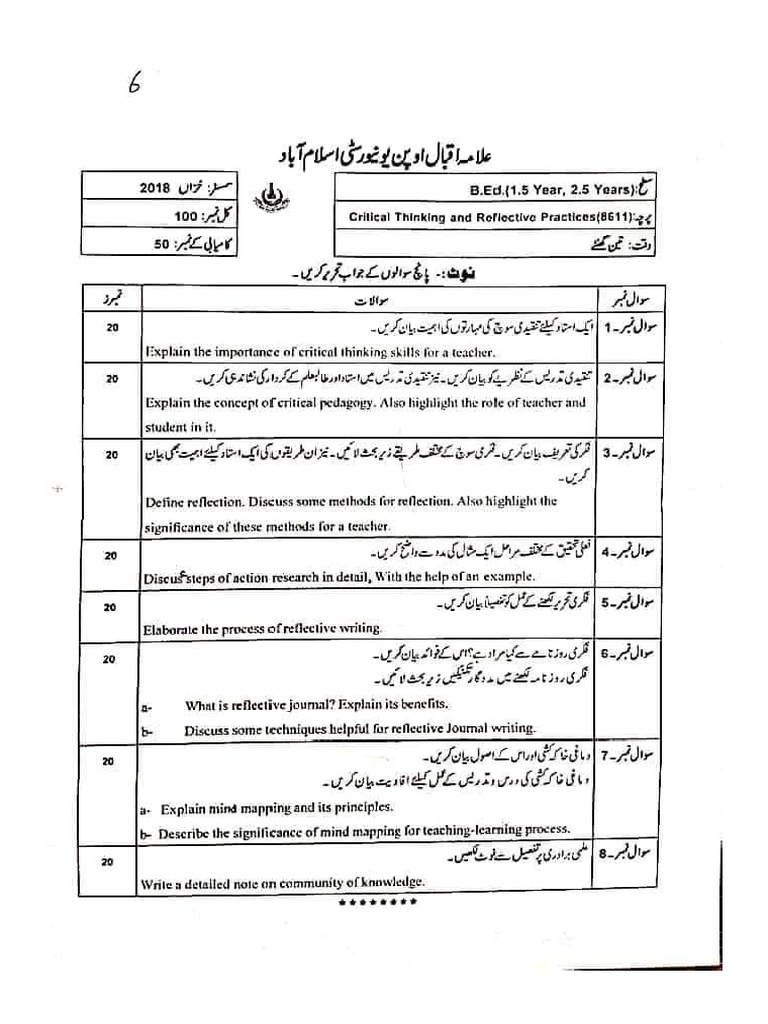 6
علامہ اقبال اوپن یونیورسٹی اسلام آباد
سطح: B.Ed.(1.5 Year, 2.5 Years)
سمسٹر: خزاں 2018
پرچہ: Critical Thinking and Reflective Practices(8611)
کل نمبر: 100
وقت: تین گھنٹے
کامیابی کے نمبر: 50
نوٹ:- پانچ سوالوں کے جواب تحریر کریں۔
سوال نمبر سوالات نمبرز
سوال نمبر-1 ایک استاد کیلئے تنقیدی سوچ کی مہارتوں کی اہمیت بیان کریں۔ 20
Explain the importance of critical thinking skills for a teacher.
سوال نمبر-2 تنقیدی تدریس کے نظریے کو بیان کریں۔ نیز تنقیدی تدریس میں استاد اور طالبعلم کے کردار کی نشاندہی کریں۔ 20
Explain the concept of critical pedagogy. Also highlight the role of teacher and
student in it.
سوال نمبر-3 فکر کی تعریف بیان کریں۔ فکری سوچ کے مختلف طریقے زیر بحث لائیں۔ نیز ان طریقوں کی ایک استاد کیلئے اہمیت بھی بیان 20
کریں۔
Define reflection. Discuss some methods for reflection. Also highlight the
significance of these methods for a teacher.
سوال نمبر-4 فعلی تحقیق کے مختلف مراحل ایک مثال کی مدد سے واضح کریں۔ 20
Discuss steps of action research in detail, With the help of an example.
سوال نمبر-5 فکری تحریر لکھنے کے عمل کو تفصیلاً بیان کریں۔ 20
Elaborate the process of reflective writing.
سوال نمبر-6 فکری روزنامے سے کیا مراد ہے؟ اس کے فوائد بیان کریں۔ 20
فکری روزنامہ لکھنے میں مددگار تکنیکیں زیر بحث لائیں۔
a- What is reflective journal? Explain its benefits.
b- Discuss some techniques helpful for reflective Journal writing.
سوال نمبر-7 دماغی خاکہ کشی اور اس کے اصول بیان کریں۔ 20
دماغی خاکہ کشی کی درس و تدریس کے عمل کیلئے افادیت بیان کریں۔
a- Explain mind mapping and its principles.
b- Describe the significance of mind mapping for teaching-learning process.
سوال نمبر-8 علمی برادری پر تفصیل سے نوٹ لکھیں۔ 20
Write a detailed note on community of knowledge.
********